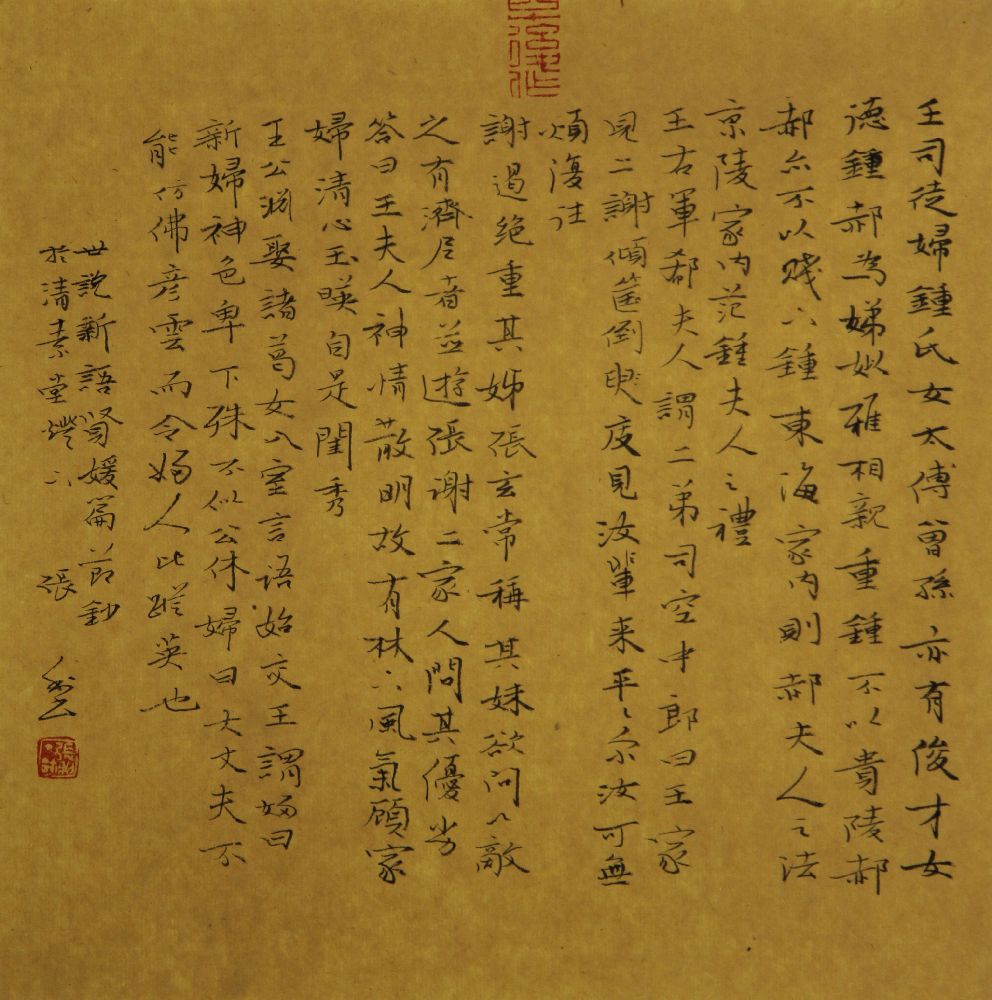 王司徒婦鍾氏女太傅曾孫亦有俊才女
德鍾郝為娣姒雅相親重鍾不以貴陵郝
郝亦不以賤下鍾東海家內則郝夫人之法
京陵家內范鍾夫人之禮
王右軍郗夫人謂二弟司空中郎曰王家
見二謝傾筐倒庋見汝輩来平〻尔汝可無
煩復往
謝遏绝重其姊張玄常稱其妹欲以敵
之有濟尼者並遊張謝二家人問其優劣
答曰王夫人神情散朗故有林下風氣顧家
婦清心玉暎自是閨秀
王公淵娶諸葛女入室言語始交王謂婦曰
新婦神色卑下殊不似公休婦曰大丈夫不
能仿佛彥雲而令婦人比蹤英也
世說新語賢媛篇節鈔
於清素堂燈下 張